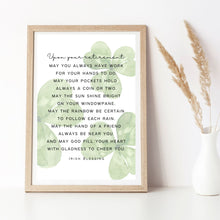 Upon your retirement
MAY YOU ALWAYS HAVE WORK
FOR YOUR HANDS TO DO.
MAY YOUR POCKETS HOLD
ALWAYS A COIN OR TWO.
MAY THE SUN SHINE BRIGHT
ON YOUR WINDOWPANE.
MAY THE RAINBOW BE CERTAIN
TO FOLLOW EACH RAIN.
MAY THE HAND OF A FRIEND
ALWAYS BE NEAR YOU
AND MAY GOD FILL YOUR HEART
WITH GLADNESS TO CHEER YOU.
IRISH BLESSING